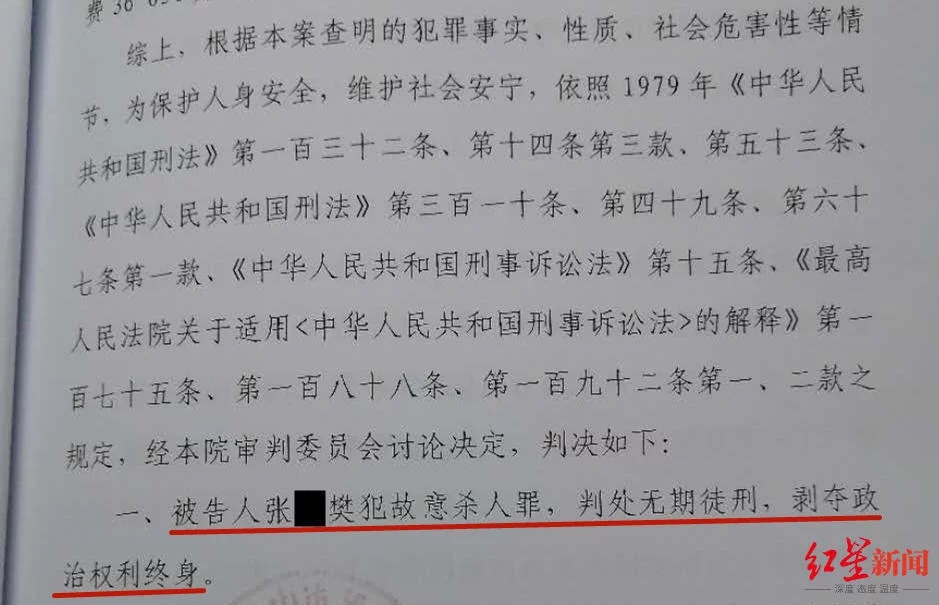 费 36 05
综上，根据本案查明的犯罪事实、性质、社会危害性等情
节，为保护人身安全，维护社会安宁，依照 1979 年《中华人民
共和国刑法》第一百三十二条、第十四条第三款、第五十三条、
《中华人民共和国刑法》第三百一十条、第四十九条、第六十
七条第一款、《中华人民共和国刑事诉讼法》第十五条、《最高
人民法院关于适用<中华人民共和国刑事诉讼法>的解释》第一
百七十五条、第一百八十八条、第一百九十二条第一、二款之
规定，经本院审判委员会讨论决定，判决如下：
一、被告人张樊犯故意杀人罪，判处无期徒刑，剥夺政
治权利终身。
红星新闻
深度 态度 温度